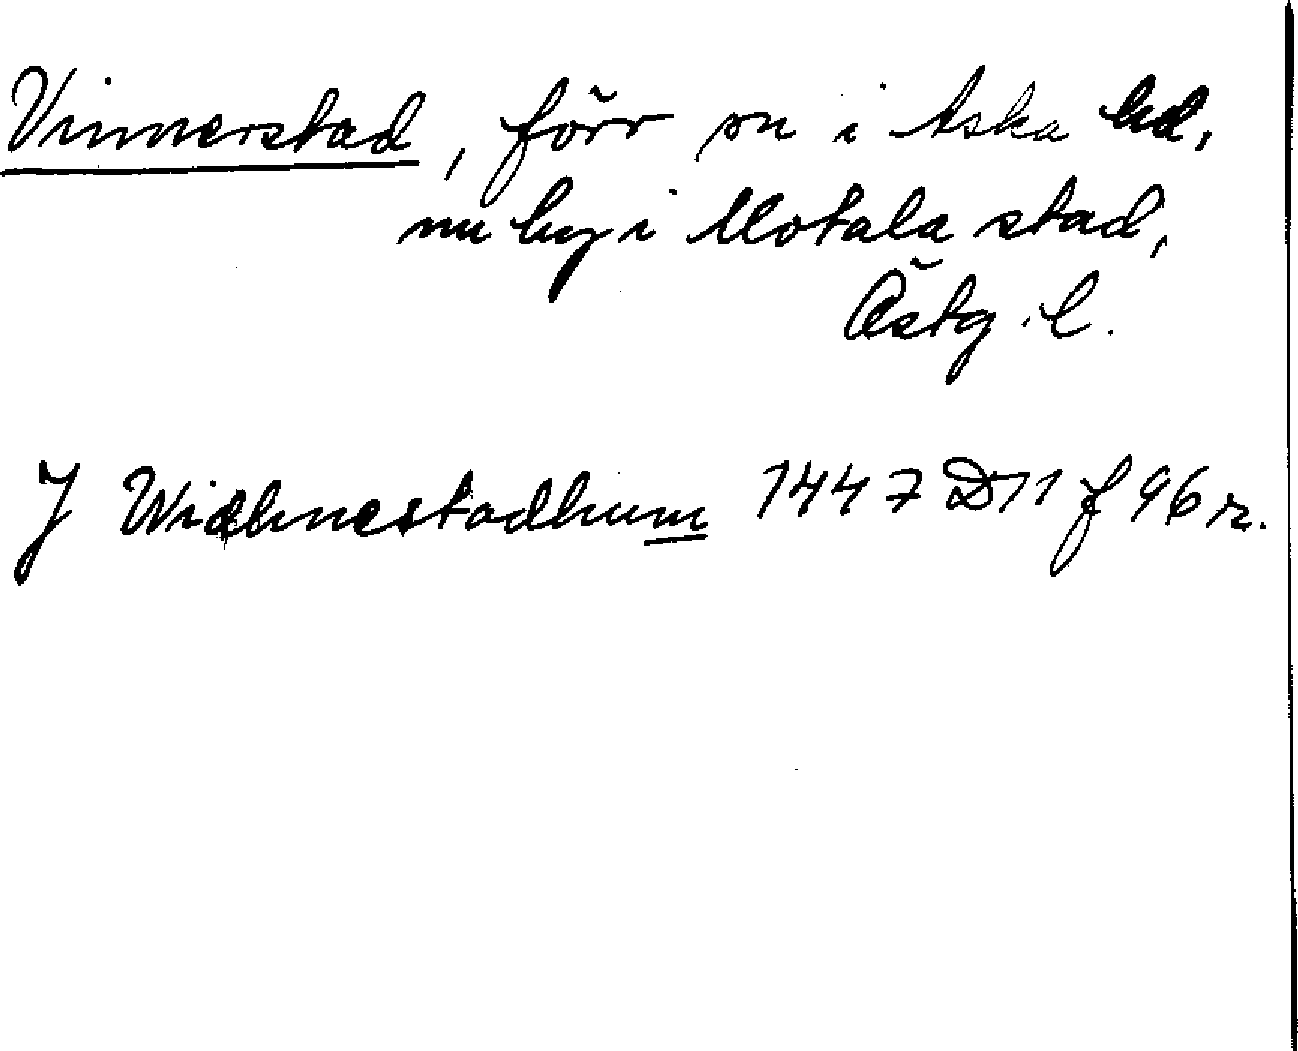 Vinnerstad, förr sn i Aska hd,
nu by i Motala stad,
Östg. l.
J Widhnestadhum 1447 D11 f 96 r.